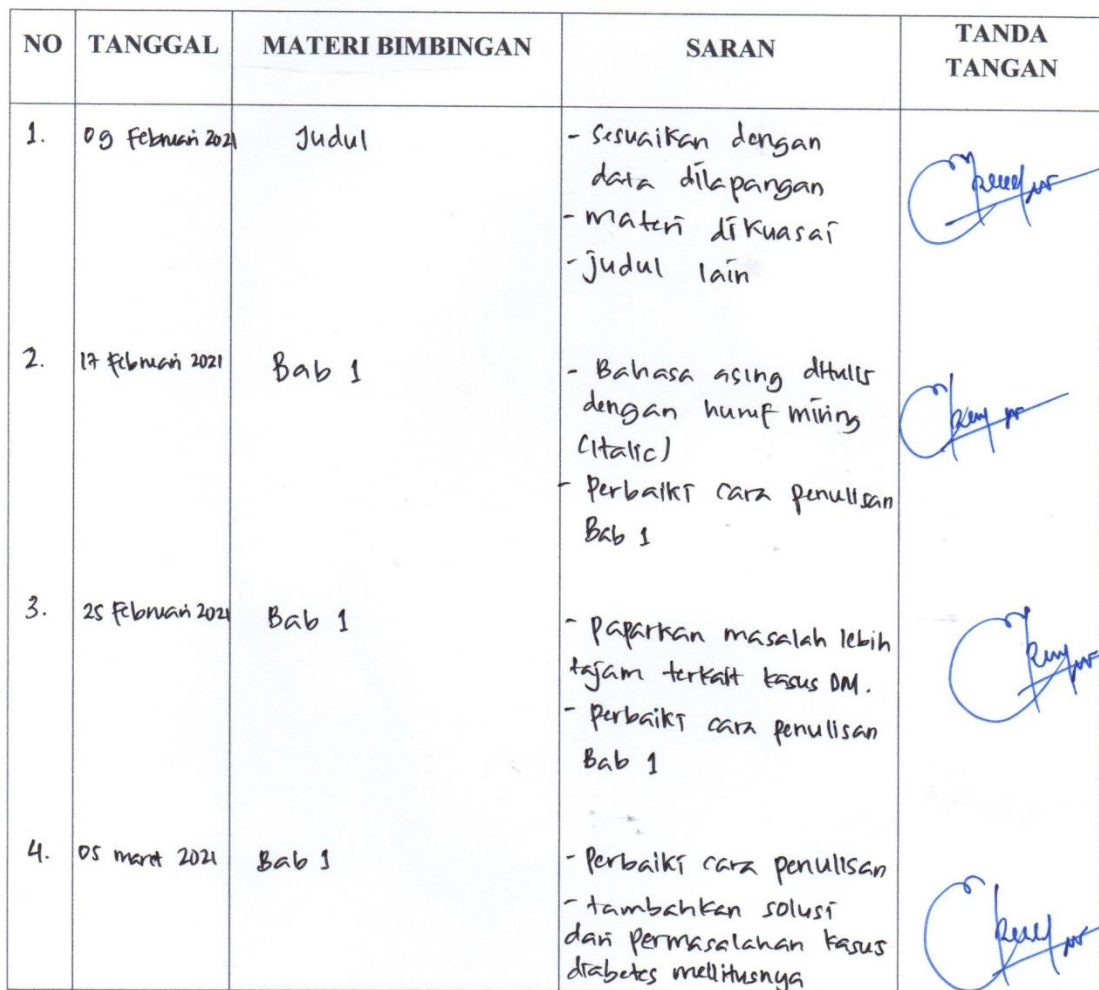 NO TANGGAL MATERI BIMBINGAN SARAN TANDA TANGAN
1. 09 Februari 2021 Judul - Sesuaikan dengan
data dilapangan
- materi dikuasai
- judul lain
2. 17 Februari 2021 Bab 1 - Bahasa asing ditulis
dengan huruf miring
(Italic)
- Perbaiki cara penulisan
Bab 1
3. 25 Februari 2021 Bab 1 - paparkan masalah lebih
tajam terkait kasus DM.
- perbaiki cara penulisan
Bab 1
4. 05 maret 2021 Bab 1 - Perbaiki cara penulisan
- tambahkan solusi
dari permasalahan kasus
diabetes mellitusnya